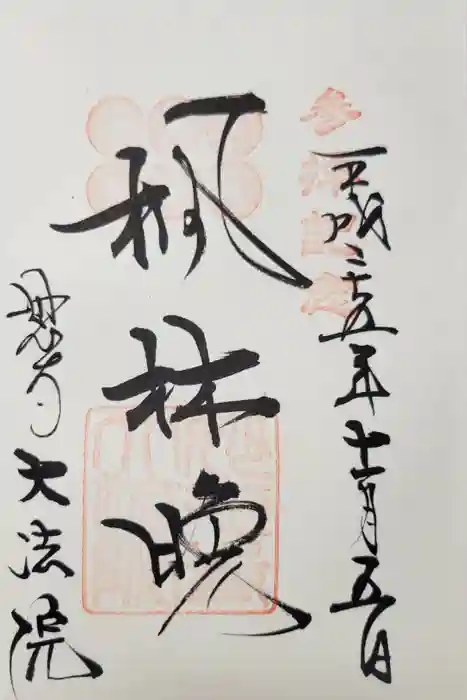 平成二十五年十一月五日
楓林晩
妙心 大法院